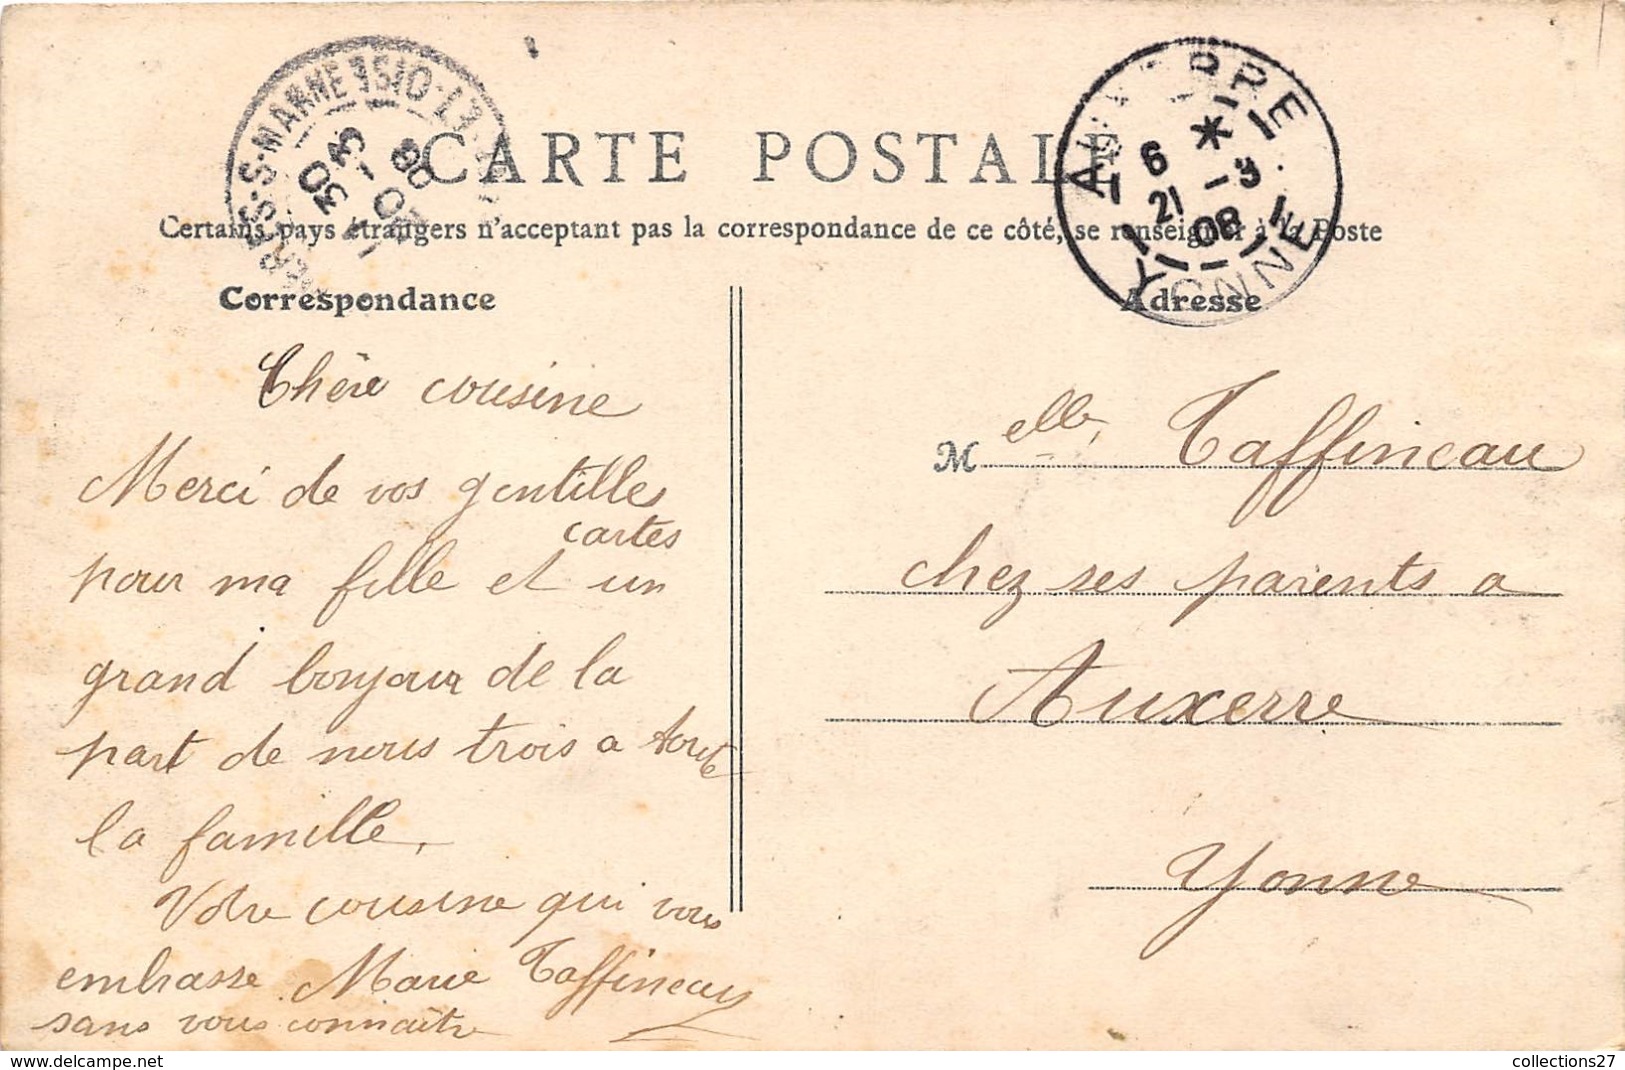 CARTE POSTALE
Certains pays étrangers n'acceptent pas la correspondance de ce côté, se renseigner à la Poste
Correspondance
Chère cousine
Merci de vos gentilles
cartes
pour ma fille et un
grand bonjour de la
part de nous trois a toute
la famille,
Votre cousine qui vous
embrasse Marie Taffineau
sans vous connaitre
Adresse
Melle, Taffineau
chez ses parents a
Auxerre
Yonne
AUXERRE
6 *
21 - 3
08
YONNE
S-S-MARNE (SEINE-ET-OISE)
11 30
20 - 3
08
collections27